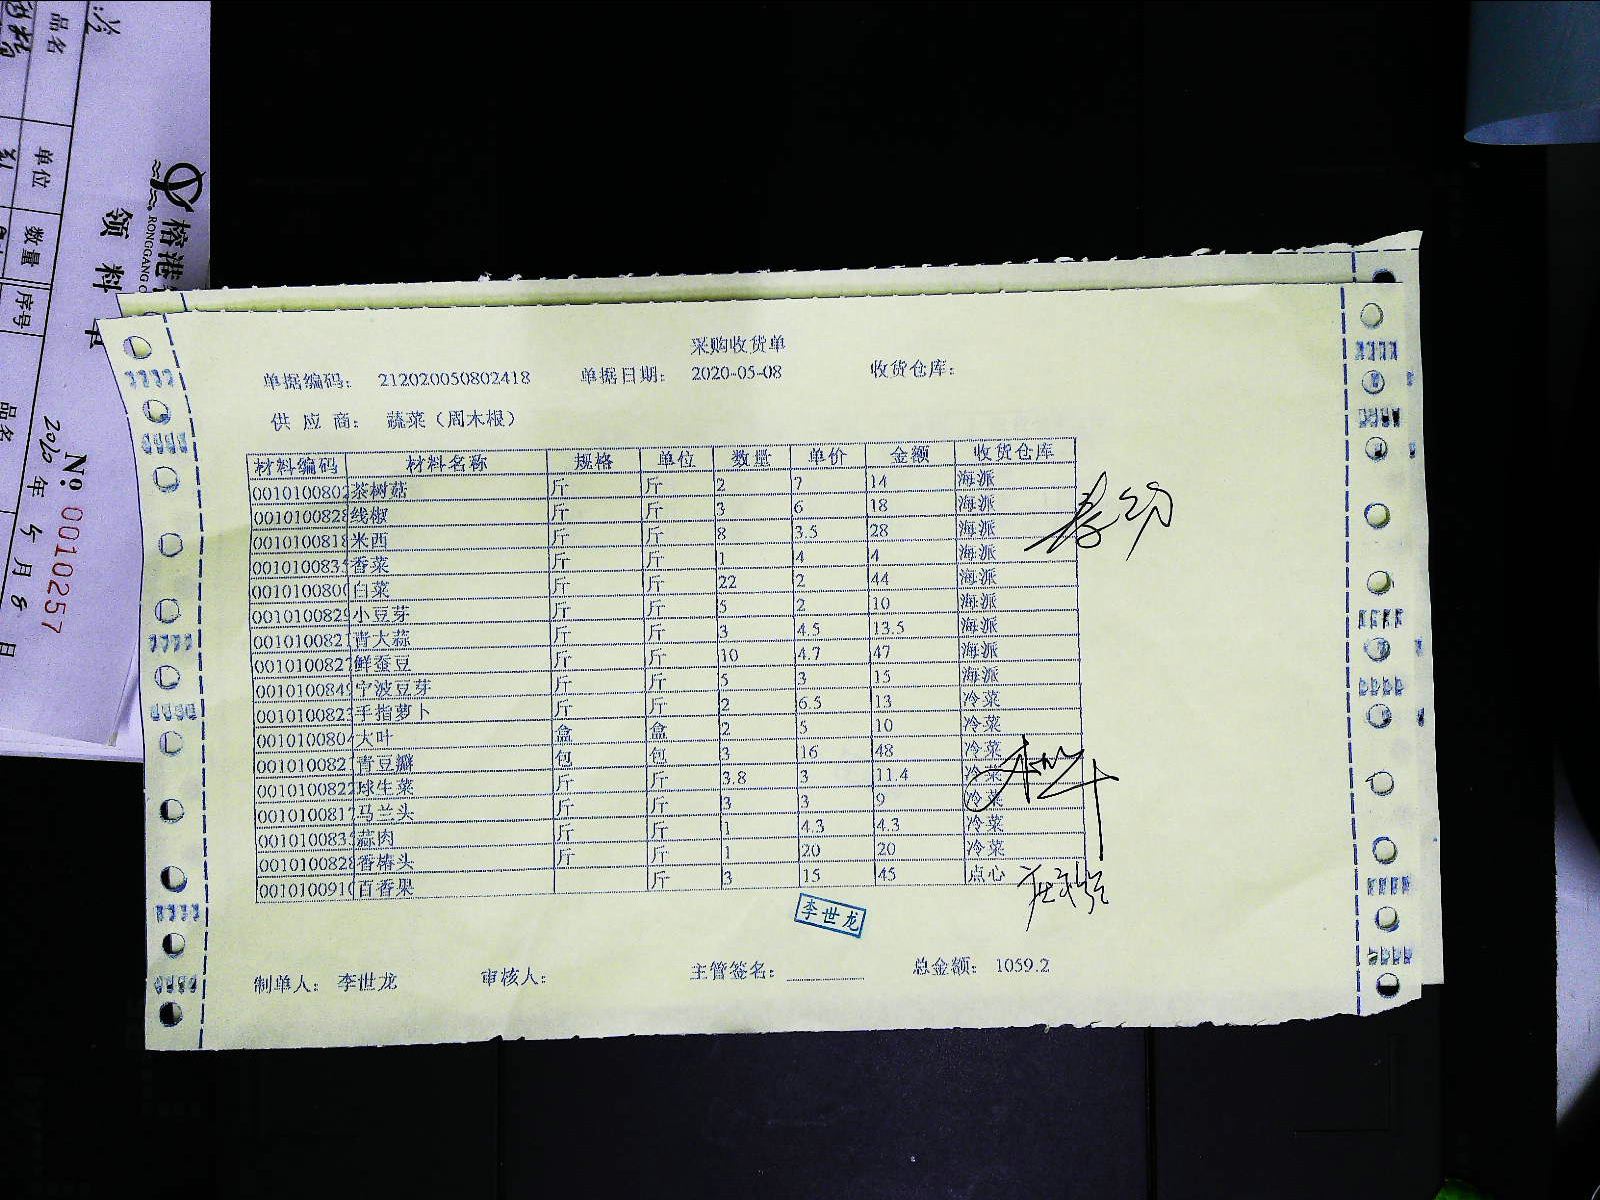 采购收货单
单据编码： 212020050802418 单据日期： 2020-05-08 收货仓库：
供 应 商： 蔬菜（周木根）
材料编码 材料名称 规格 单位 数量 单价 金额 收货仓库
0010100802 茶树菇 斤 斤 2 7 14 海派
0010100828 线椒 斤 斤 3 6 18 海派
0010100818 米西 斤 斤 8 3.5 28 海派
001010083 香菜 斤 斤 1 4 4 海派
0010100800 白菜 斤 斤 22 2 44 海派
0010100829 小豆芽 斤 斤 5 2 10 海派
001010082 青大蒜 斤 斤 3 4.5 13.5 海派
0010100827 鲜蚕豆 斤 斤 10 4.7 47 海派
0010100849 宁波豆芽 斤 斤 5 3 15 海派
0010100823 手指萝卜 斤 斤 2 6.5 13 冷菜
0010100804 大叶 盒 盒 2 5 10 冷菜
001010082 青豆瓣 包 包 3 16 48 冷菜
0010100822 球生菜 斤 斤 3.8 3 11.4 冷菜
0010100817 马兰头 斤 斤 3 3 9 冷菜
001010083 蒜肉 斤 斤 1 4.3 4.3 冷菜
0010100828 香椿头 斤 斤 1 20 20 冷菜
0010100910 百香果 斤 3 15 45 点心
李世龙
制单人： 李世龙 审核人： 主管签名： 总金额： 1059.2
榕港
RONGGANG
领料单
№ 0010257
2020 年 5 月 8 日
品名 单位 数量 序号 品名